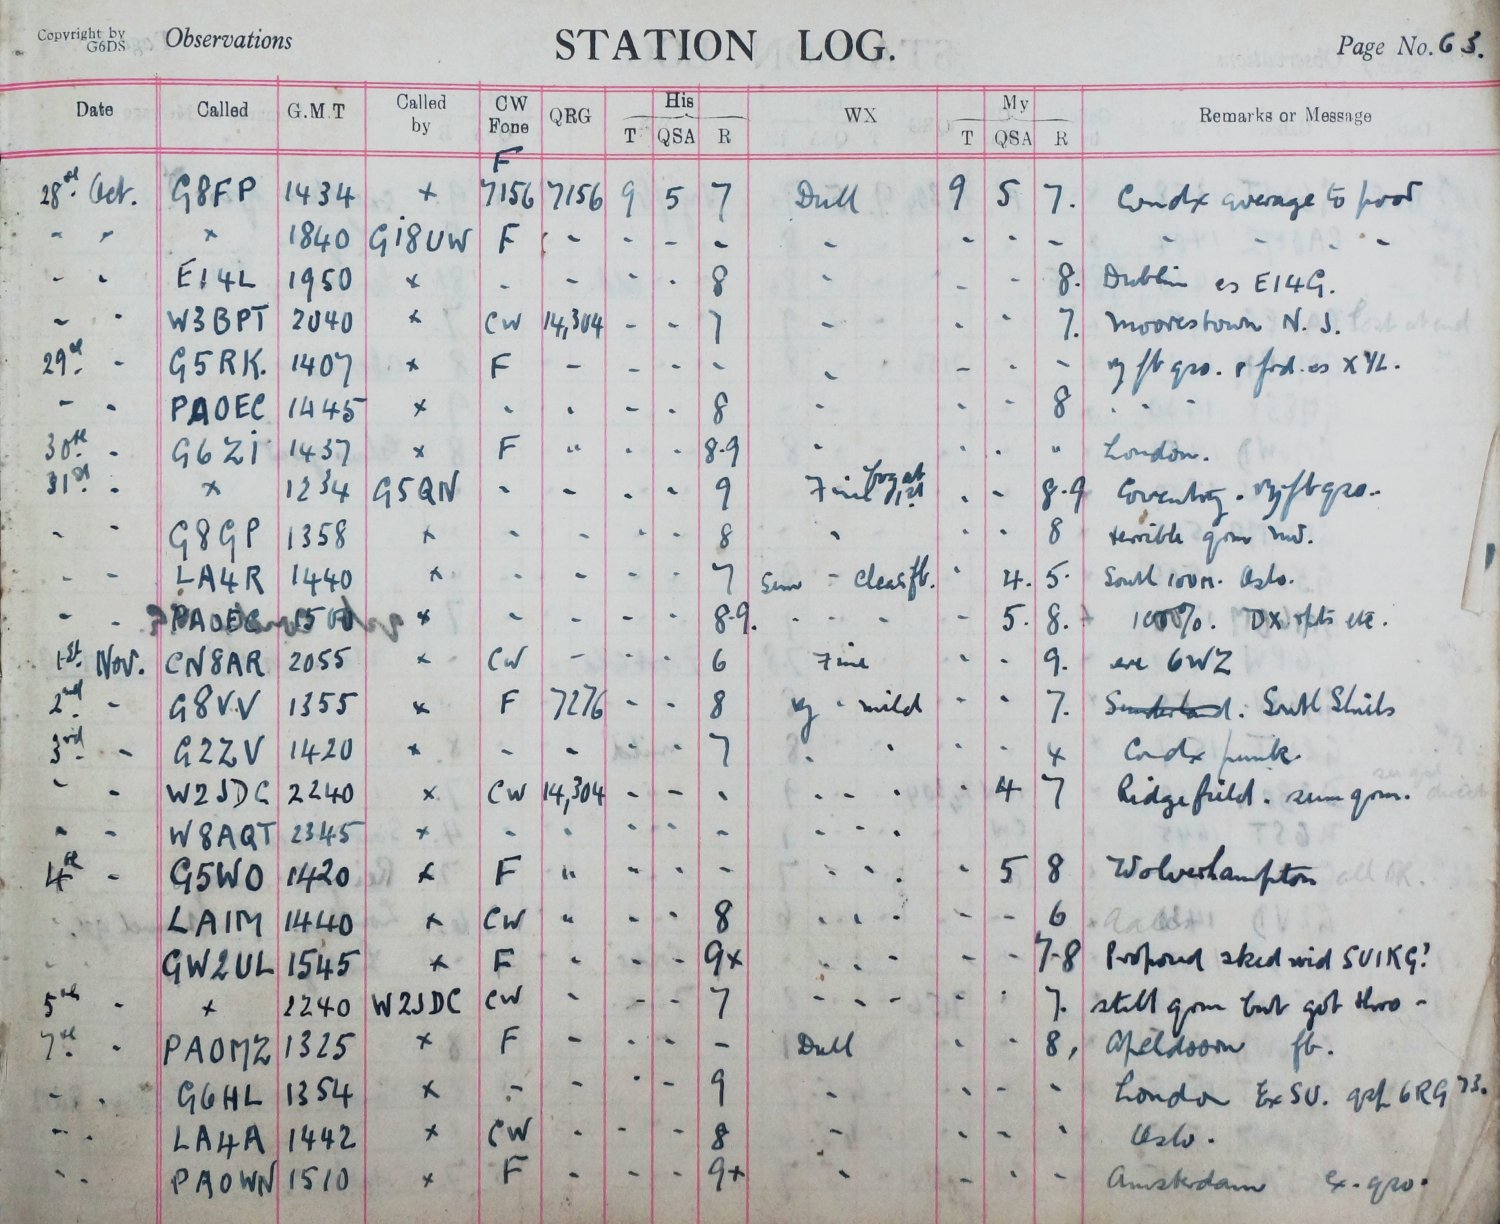 Copyright by G6DS Observations STATION LOG. Page No. 63.
Date Called G.M.T Called by CW Fone QRG His T QSA R WX My T QSA R Remarks or Message
F
28th Oct. G8FP 1434 × 7156 7156 9 5 7 Dull 9 5 7. Condx average to poor
" " × 1840 Gi8UW F - - - - - - - - - - -
- - EI4L 1950 × - - - - 8 - - 8. Dublin es EI4G.
- - W3BPT 2040 × CW 14,304 - - 7 - - - 7. Moorestown N.J.
29th - G5RK. 1407 × F - - - - - - - - vy fb qso. es XYL.
- - PA0EC 1445 × - - - - 8 - - - 8 - - -
30th - G6Zi 1437 × F " - - 8-9 - - - " London.
31st - × 1234 G5QN - - - - 9 Fine fog at 1st - - 8-9 Coventry. vy fb qso..
- - G8GP 1358 × - - - - 8 - - - 8 terrible qrm
- - LA4R 1440 × - - - - 7 - clear fb. - 4. 5. South Oslo.
- - PA0EC 1500 × - - - - 8-9. - - - - 5. 8. 100%. DX rpts etc.
1st Nov. CN8AR 2055 × CW - - - 6 Fine - - 9. ere 6WZ
2nd - G8VV 1355 × F 7276 - - 8 vy - mild - - 7. Sunderland. South Shields
3rd - G2ZV 1420 × - - - - 7 - - - - × Condx punk.
- - W2JDC 2240 × CW 14,304 - - - - - - - 4 7 Ridgefield. sum qrm.
- - W8AQT 2345 × - - - - - - - -
4th - G5WO 1420 × F " - - - - - - - 5 8 Wolverhampton
LA1M 1440 × CW " - - 8 - - - - - 6
GW2UL 1545 × F - - - 9× - - - - - 7-8 Proposed sked wid SU1KG?
5th - × 2240 W2JDC CW - - - 7 - - - - - 7. still qrm but got thro -
7th - PA0MZ 1325 × F - - - - Dull - - 8, Apeldoorn fb.
- - G6HL 1354 × - - - - 9 - - - - London Ex SU. 6RG 73.
- - LA4A 1442 × CW - - - 8 - - - - Oslo.
- - PA0WN 1510 × F - - - 9+ - - - - Amsterdam Ex. qso.